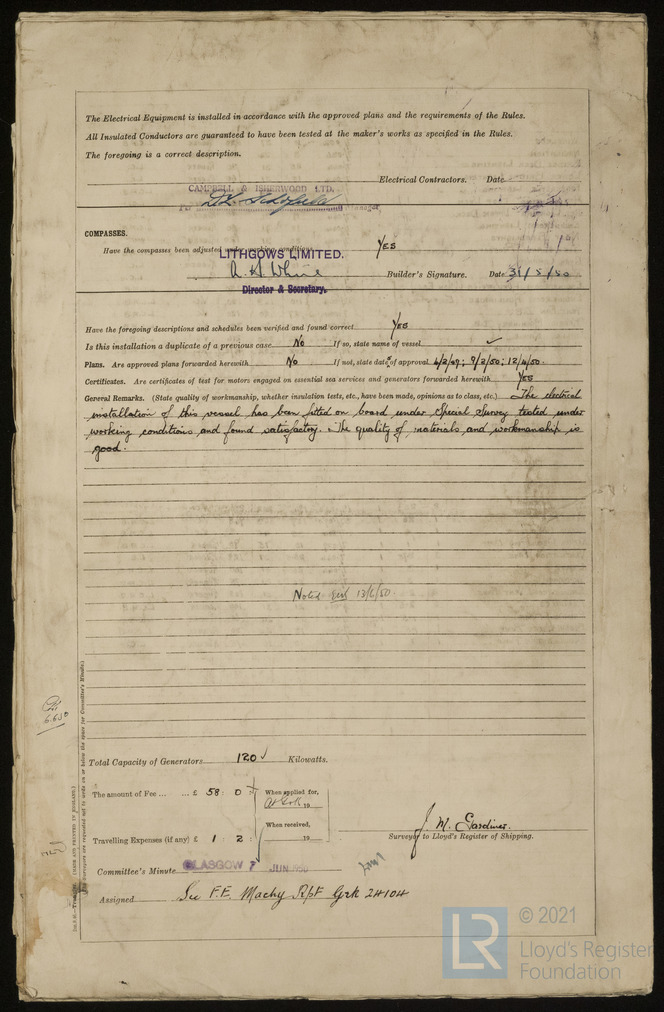 The Electrical Equipment is installed in accordance with the approved plans and the requirements of the Rules.
All Insulated Conductors are guaranteed to have been tested at the maker's works as specified in the Rules.
The foregoing is a correct description.
Electrical Contractors. Date
CAMPBELL & ISHERWOOD LTD.
Manager,
COMPASSES.
Have the compasses been adjusted under working conditions Yes
LITHGOWS LIMITED.
Builder's Signature. Date 31/5/50
Director & Secretary.
Have the foregoing descriptions and schedules been verified and found correct Yes
Is this installation a duplicate of a previous case No If so, state name of vessel
Plans. Are approved plans forwarded herewith No If not, state date of approval 4/2/49; 9/2/50; 12/4/50.
Certificates. Are certificates of test for motors engaged on essential sea services and generators forwarded herewith Yes
General Remarks. (State quality of workmanship, whether insulation tests, etc., have been made, opinions as to class, etc.) The electrical
installation of this vessel has been fitted on board under Special Survey tested under
working conditions and found satisfactory. The quality of materials and workmanship is
good.
Noted 13/6/50
Total Capacity of Generators 120 Kilowatts.
The amount of Fee ... ... £ 58 : 0 : When applied for,
19
When received,
Travelling Expenses (if any) £ 1 : 2 : 19
J. M. Gardiner.
Surveyor to Lloyd's Register of Shipping.
Committee's Minute GLASGOW 7 JUN 1950
Assigned See F.E. Machy Rpt Grk 24104
(MADE AND PRINTED IN ENGLAND.)
(The Surveyors are requested not to write on or below the space for Committee's Minute.)
© 2021
LR
Lloyd's Register
Foundation